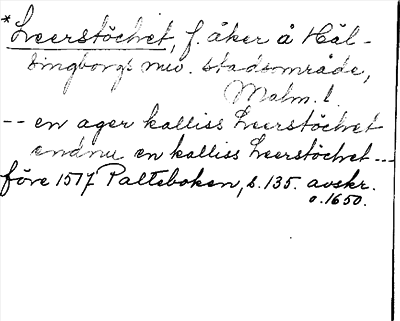 *Leerstöchet, f. åker å Häl-
singborgs nuv. stadsområde,
Malm. l.
-- en ager kalliss Leerstöchet
endnu en kalliss Leerstöchet ---
före 1517 Palteboken, s. 135. avskr.
o. 1650.